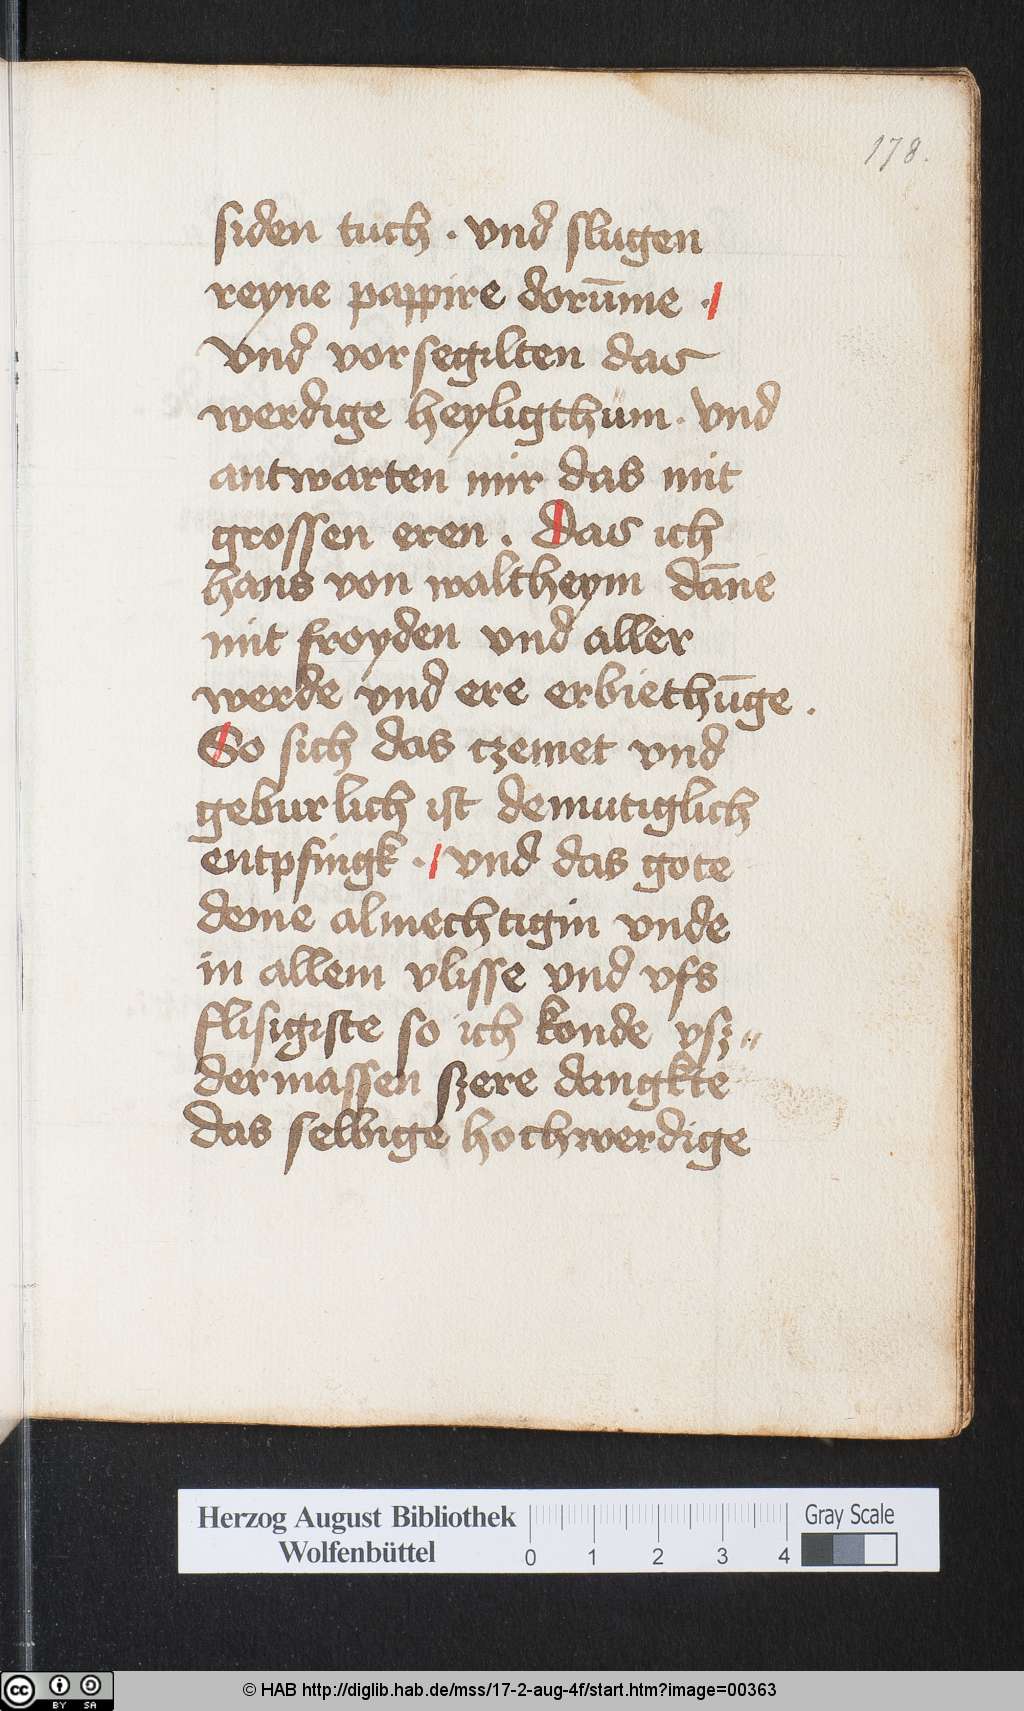 178.
siden tuch · vnd slugen
reyne pappire dorūme ·
vnd vorsegilten das
werdige heyligthum · vnd
antwarten mir das mit
grossen eren . Das ich
hans von waltheym dāne
mit froyden vnd aller
werde vnd ere erbiethūge .
So sich das czemet vnd
geburlich ist demutiglich
entpfingk · vnd das gote
deme almechtigin vnde
in allem vlisse vnd vfs
flisigiste so ich konde vsz〃
dermassen szere dangkte
das selbige hochwerdige
Herzog August Bibliothek
Wolfenbüttel
0 1 2 3 4
Gray Scale
cc BY SA
© HAB http://diglib.hab.de/mss/17-2-aug-4f/start.htm?image=00363